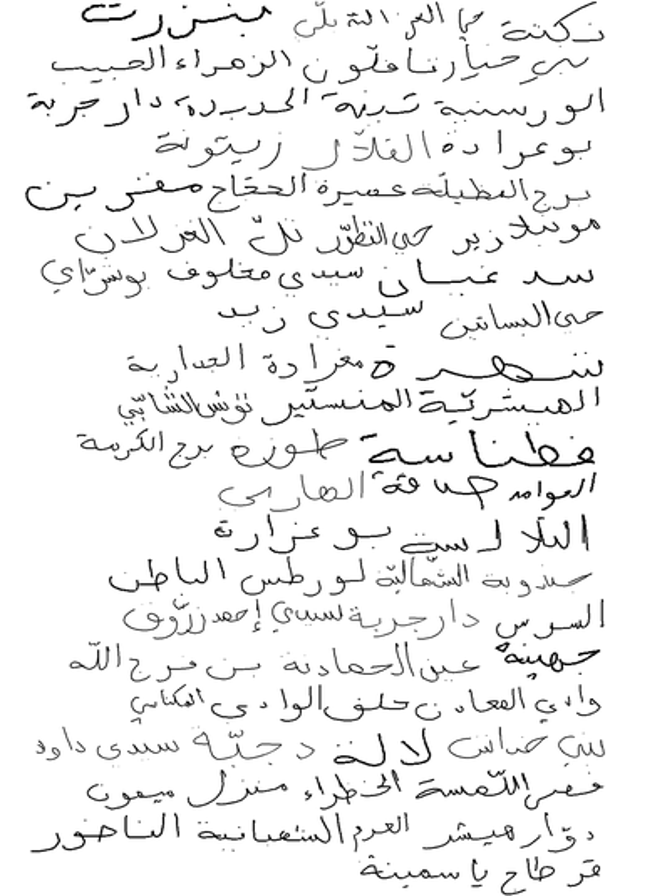 زكتة حي العز التة تلّي بنزرت
بني خيار تنافلون الزهراء الحبيب
الورسنية تبينة الحديدة دار جربة
بوعرادة الفلاّل زيتونة
برج الطيلة عميرة الحجّاج مفر بن
مونبلازير حي التطوّر تلّ الغزلان
سد غسان سيدي مخلوف بوشرّاي
حي البساتين سيدي زيد
شهرة مغرادة الجدارية
المبشريّة المنستير تونس الشابّي
فطناسة طوزة برج الكرمة
العوامد صدقة الهاربي
التلالسة بوعرارة
جندوبة الشّماليّة لورطس الباطن
السرس دار جربة سيدي إحمد زرّوف
جهينة عين الحمادنة بن فرج اللّه
وادي المعادن حلف الوادي المكناسي
بني خداش لالة دجبّة سيدي داود
قصر اللّمسة الخطراء منزل ميمون
دوّار هيشر العرم الشعبانية الناظور
قرطاج ياسمينة